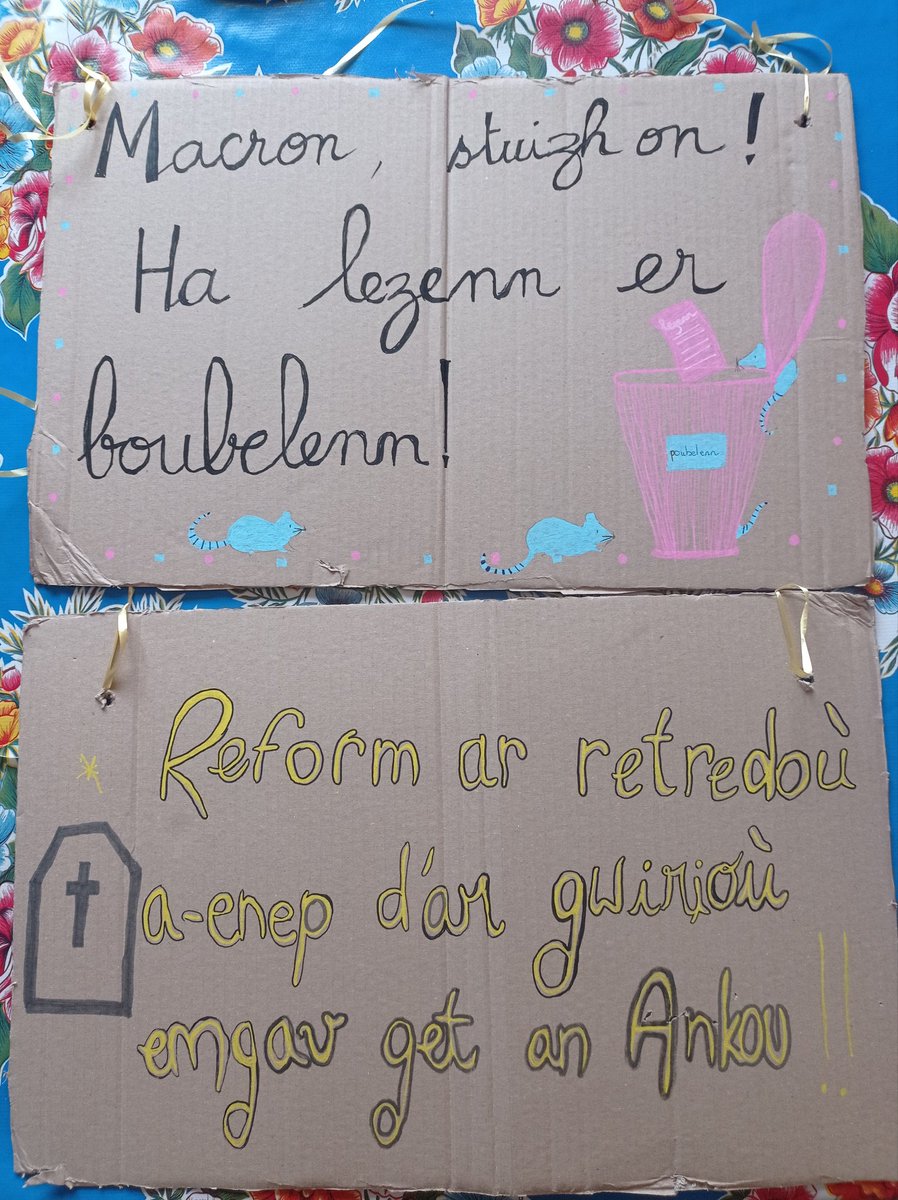 Macron, stuizh on!
Ha lezenn er
boubelenn!
lezenn
poubelenn
Reform ar retredoù
a-enep d'ar gwirioù
emgav get an Ankou !!